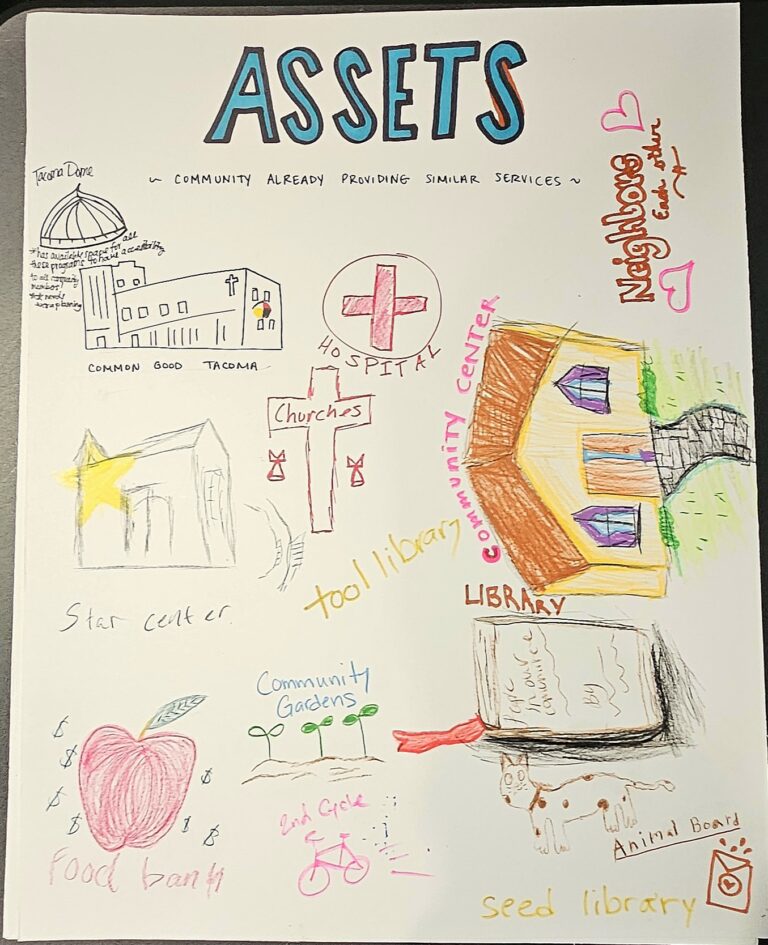 ASSETS
~ COMMUNITY ALREADY PROVIDING SIMILAR SERVICES ~
Tacoma Dome
*has available space for all
these programs to have accessibility
to all community
members!
that needs
more planning
Neighbors
Each other
COMMON GOOD TACOMA
HOSPITAL
Churches
community CENTER
Star center
tool library
LIBRARY
in our
By
Community
Gardens
$
$
$
$
$
$
$
Food bank
2nd Cycle
Animal Board
seed library